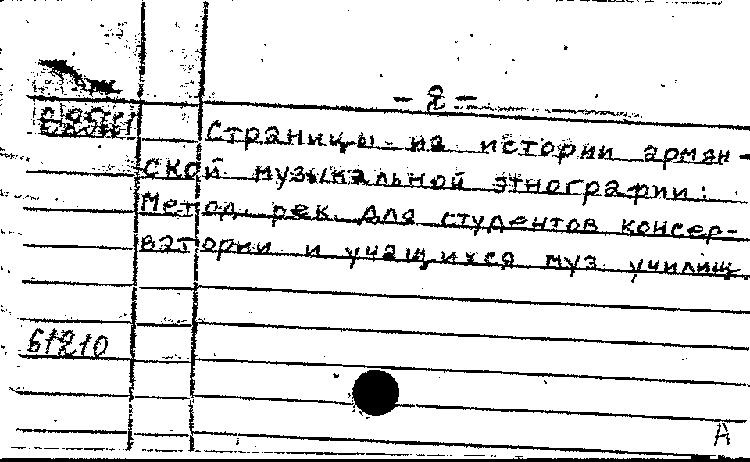 - 2 -
Страницы из истории армян-
ской музыкальной этнографии:
Метод. рек. для студентов консер-
ватории и учащихся муз. училищ
61210
А